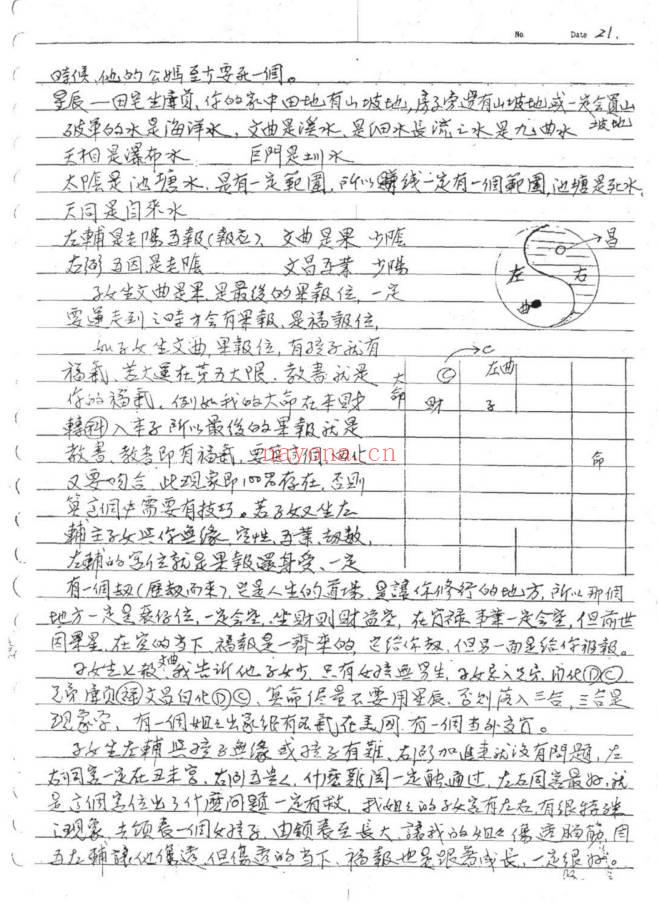 No
Date 21.
時候,他的公媽至少要死一個。
星辰—田宅坐廉貞,你的家中田地有山坡地,房子旁邊有山坡地或一定會買山坡地
破軍的水是海洋水,文曲是溪水,是細水長流之水是九曲水
天相是瀑布水 巨門是圳水
太陰是池塘水,是有一定範圍,所以賺錢一定有一個範圍,池塘是死水,
天同是 水
左輔是老陽 報(報應)、文曲是果 少陰
右弼 因是老陰 文昌 業 少陽
子女坐文曲是果,是最後的果報位,一定
要運走到 時才會有果報,是福報位,
如子女坐文曲,果報位,有孩子就有
福氣,若大運在第五大限,教書就是
你的福氣,例如我的大命在本田
轉科入本子所以最後的果報就是
教書,教書即有福氣,要 四化
又要吻合,此現象即100%存在,否則
算這個 需要有技巧。若子女又坐左
輔主子女與你無緣 定性, 業、劫數,
左輔的宮位就是果報還身受、一定
有一個劫(歷劫而來),它是人生的道場,是讓你修行的地方,所以那個
地方一定是要修位,一定會空,坐財則財盜空,在官祿事業一定會空,但前世
因果星,在空的當下,福報是一齊來的,它給你劫,但另一面是給你福報。
子女坐 我告訴他子女少,只有女孩無男生,子女忌入 自化D C
廉貞 文昌自化D C,算命儘量不要用星辰,否則落入三合,三合是
現象學,有一個姐姐出家 在美國,有一個 。
子女坐左輔與孩子無緣或孩子有難、右弼加進來就沒有問題,左
右同宮一定在丑未宮,右弼 貴人,什麼難關一定融通過,左右同宮最好,就
是這個宮位出了什麼問題一定有救,我姐姐的子女宮有左右,有很特殊
之現象,去領養一個女孩子,由領養至長大,讓我的姐姐傷透腦筋,因
左輔讓他傷透,但傷透的當下,福報也是跟著成長,一定很好。
左 右
昌
曲
大命
C
C
財
左曲
子
命
nayona.cn